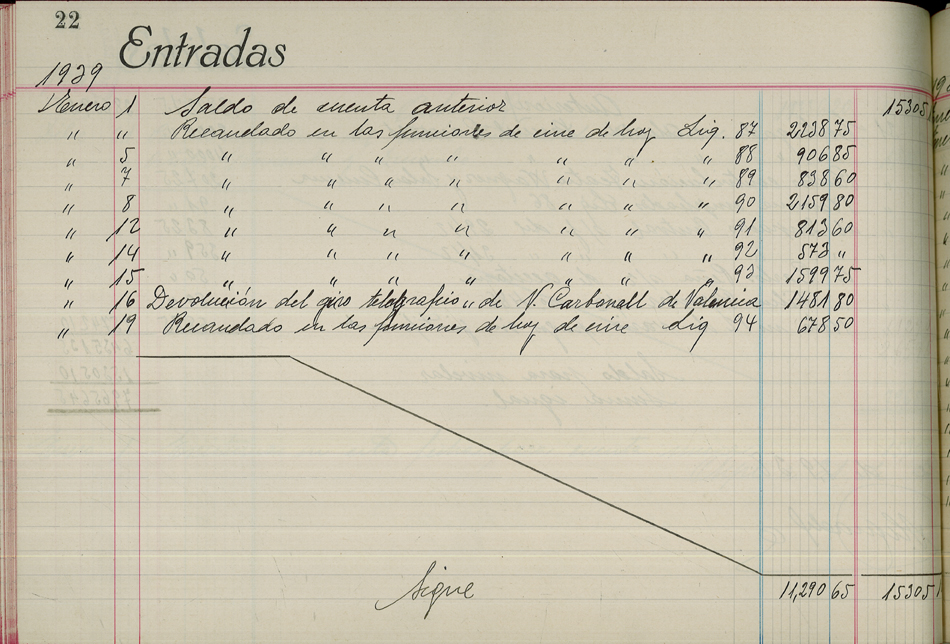 22
Entradas
1939
Enero 1 Saldo de cuenta anterior 15305
" " Recaudado en las funciones de cine de hoy Liq. 87 2238 75
" 5 " " " " " " " 88 906 85
" 7 " " " " " " " 89 838 60
" 8 " " " " " " " 90 2159 80
" 12 " " " " " " " 91 813 60
" 14 " " " " " " " 92 573 "
" 15 " " " " " " " 93 1599 75
" 16 Devolución del giro telegrafico de V. Carbonell de Valencia 1481 80
" 19 Recaudado en las funciones de hoy de cine Liq 94 678 50
Sigue 11,290 65 15305